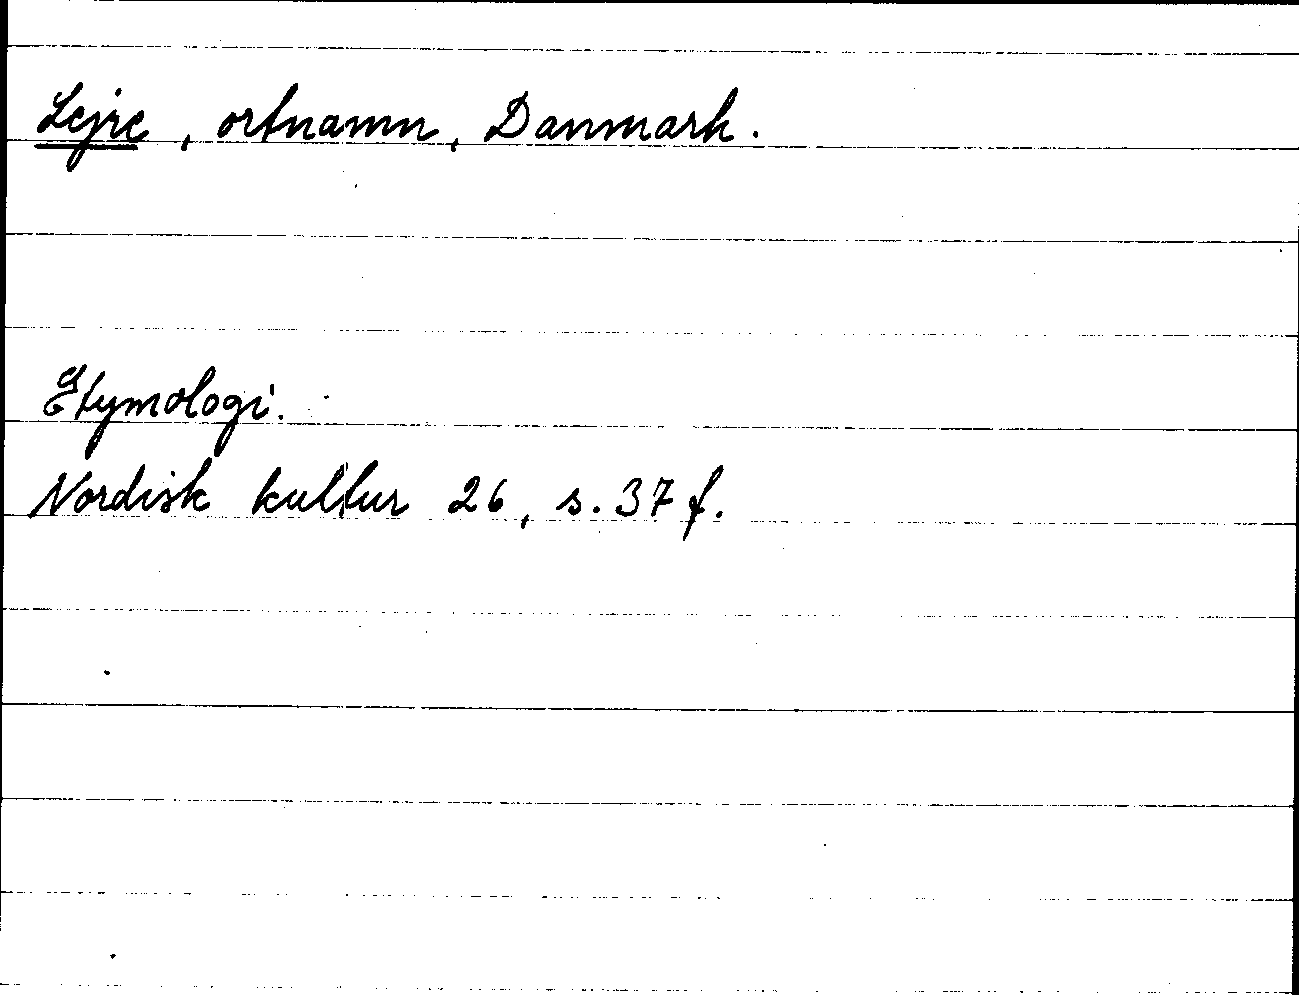 Lejre, ortnamn, Danmark.
Etymologi.
Nordisk kultur 26, s. 37 f.